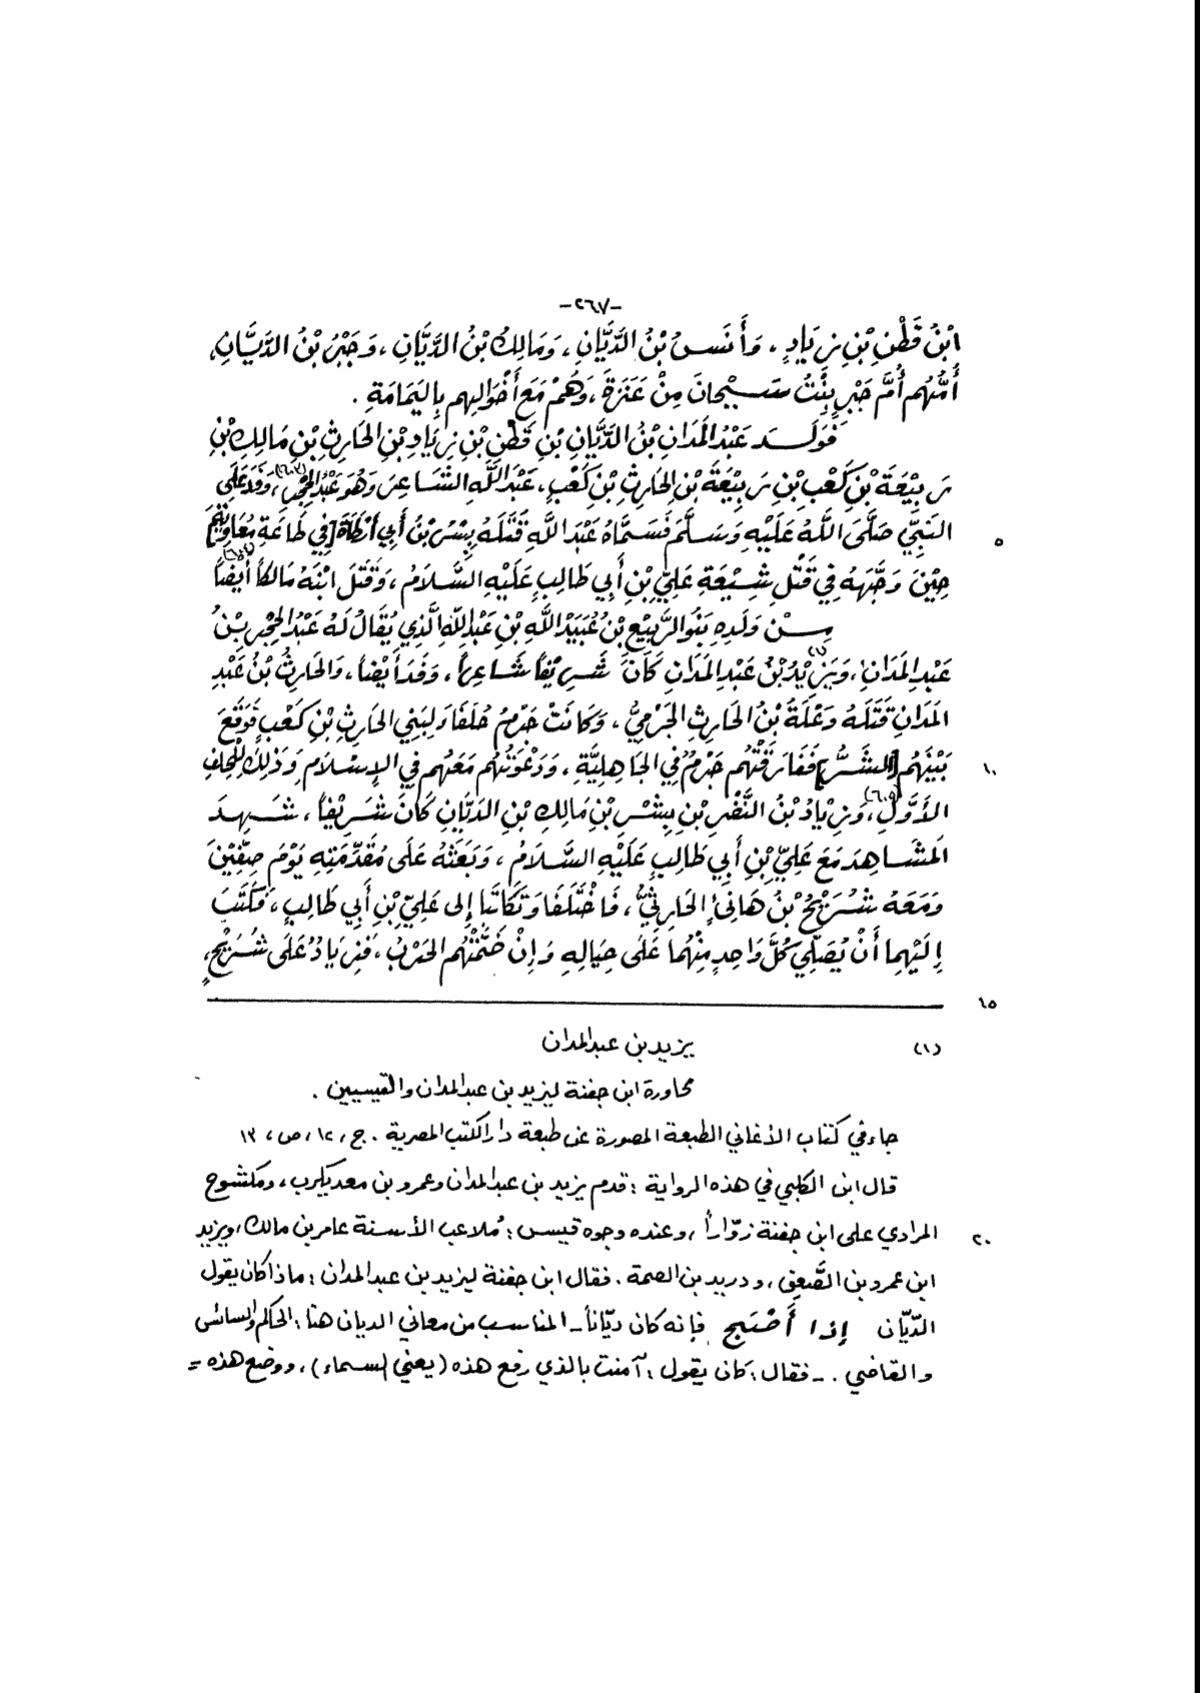 -٢٦٧-
ابْنُ قَطَنِ بْنِ زِيَادٍ، وَأَنَسُ بْنُ الدَّيَّانِ، وَمَالِكُ بْنُ الدَّيَّانِ، وَجَبْرُ بْنُ الدَّيَّانِ،
أُمُّهُم أُمُّ جَبْرٍ بِنْتُ سَيْحَانَ مِنْ عَنَزَةَ، وَهُمْ مَعَ أَخْوَالِهِم بِاليَمَامَةِ.
فَوَلَدَ عَبْدُ المَدَانِ بْنُ الدَّيَّانِ بْنِ قَطَنِ بْنِ زِيَادِ بْنِ الحَارِثِ بْنِ مَالِكِ بْنِ
رَبِيْعَةَ بْنِ كَعْبِ بْنِ رَبِيْعَةَ بْنِ الحَارِثِ بْنِ كَعْبٍ، عَبْدَ اللَّهِ الشَّاعِرَ وَهُوَ عَبْدُ الحِجْرِ(٦٠٧)، وَفَدَ عَلَى
النَبِيِّ صَلَّى اللَّهُ عَلَيْهِ وَسَلَّمَ فَسَمَّاهُ عَبْدَ اللَّهِ قَتَلَهُ بِسْرُ بْنُ أَبِي أَرْطَاةَ [فِي طَاعَةِ مُعَاوِيَةَ]
٥
حِيْنَ وَجَّهَهُ فِي قَتْلِ شِيْعَةِ عَلِيِّ بْنِ أَبِي طَالِبٍ عَلَيْهِ السَّلَامُ، وَقَتَلَ ابْنَهُ مَالِكاً أَيْضاً
مِنْ وَلَدِهِ بَنُو الرَّبِيْعِ بْنُ عُبَيْدِ اللَّهِ بْنِ عَبْدِ اللَّهِ الَّذِي يُقَالُ لَهُ عَبْدُ الحِجْرِ بْنُ
عَبْدِ المَدَانِ، وَيَزِيْدُ(١) بْنُ عَبْدِ المَدَانِ كَانَ شَرِيْفاً شَاعِراً، وَفَدَ أَيْضاً، وَالحَارِثُ بْنُ عَبْدِ
المَدَانِ قَتَلَهُ وَعْلَةُ بْنُ الحَارِثِ الجَرْمِيُّ، وَكَانَتْ جَرْمُ حُلَفَاءَ لِبَنِي الحَارِثِ بْنِ كَعْبٍ فَوَقَعَ
بَيْنَهُم [الشَّرُّ] فَفَارَقَتْهُم جَرْمُ فِي الجَاهِلِيَّةِ، وَدَعْوَتُهُم مَعَهُم فِي الإِسْلَامِ وَذَلِكَ لِلْحِلْفِ
١٠
الأَوَّلِ(٦٠٩)، وَزِيَادُ بْنُ النَّضْرِ بْنِ بِشْرِ بْنِ مَالِكِ بْنِ الدَيَّانِ كَانَ شَرِيْفاً، شَهِدَ
المَشَاهِدَ مَعَ عَلِيِّ بْنِ أَبِي طَالِبٍ عَلَيْهِ السَّلَامُ، وَبَعَثَهُ عَلَى مُقَدِّمَتِهِ يَوْمَ صِفِّيْنَ
وَمَعَهُ شُرَيْحُ بْنُ هَانِئٍ الحَارِثِيُّ، فَاخْتَلَفَا وَتَكَاتَبَا إِلَى عَلِيِّ بْنِ أَبِي طَالِبٍ، فَكَتَبَ
إِلَيْهِمَا أَنْ يُصَلِّي كُلُّ وَاحِدٍ مِنْهُمَا عَلَى حِيَالِهِ وَإِنْ ضَمَّتْهُم الحَرْبُ، فَزِيَادُ عَلَى شُرَيْحٍ،
١٥
(١) يزيد بن عبد المدان
محاورة ابن جفنة ليزيد بن عبد المدان والقيسيين.
جاء في كتاب الأغاني الطبعة المصورة عن طبعة دار الكتب المصرية. ج، ١٢، ص، ١٣
قال ابن الكلبي في هذه الرواية: قدم يزيد بن عبد المدان وعمرو بن معد يكرب، ومكشوح
المرادي على ابن جفنة زوّاراً، وعنده وجوه قيس: مُلاعب الأسنة عامر بن مالك، ويزيد
٢٠
ابن عمرو بن الصَّعِق، ودريد بن الصمة. فقال ابن جفنة ليزيد بن عبد المدان: ماذا كان يقول
الدّيّان إذا أَصْبَح فإنه كان ديّاناً ــ المناسب من معاني الديان هنا: الحاكم والسائس
والقاضي. ــ فقال: كان يقول: آمنت بالذي رفع هذه (يعني السماء)، ووضع هذه =